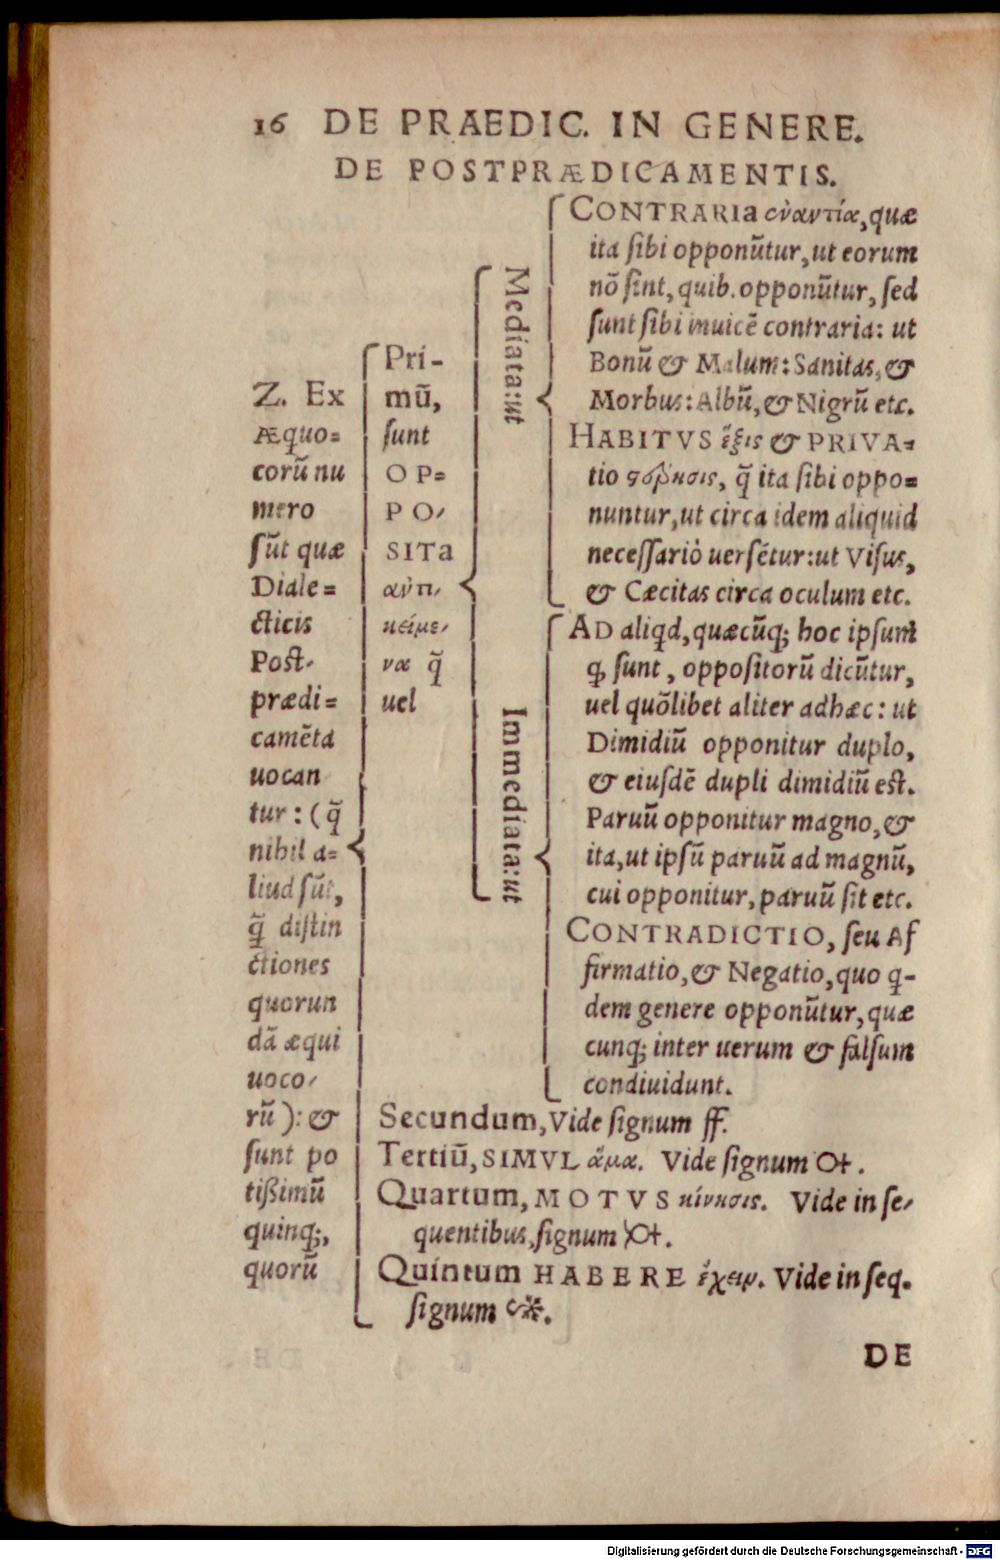 16 DE PRAEDIC. IN GENERE.
DE POSTPRÆDICAMENTIS.
Z. Ex
Æquo=
corū nu
mero
sūt quæ
Diale=
cticis
Post-
prædi=
camēta
uocan
tur: (q̃
nihil a=
liud sūt,
q̃ distin
ctiones
quorun
dā æqui
uoco-
rū): &
sunt po
tißimū
quinq;,
quorū
Pri-
mū,
sunt
OP=
PO-
SITa
ἀντι-
κείμε-
να q̃
uel
Mediata: ut
CONTRARIa ἐναντία, quæ
ita sibi opponūtur, ut eorum
nō sint, quib. opponūtur, sed
sunt sibi inuicē contraria: ut
Bonū & Malum: Sanitas, &
Morbus: Albū, & Nigrū etc.
HABITVS ἕξις & PRIVA=
tio στέρησις, q̃ ita sibi oppo=
nuntur, ut circa idem aliquid
necessariò uersētur: ut Visus,
& Cæcitas circa oculum etc.
Immediata: ut
AD aliqd, quæcūq; hoc ipsum
q, sunt, oppositorū dicūtur,
uel quōlibet aliter ad hæc: ut
Dimidiū opponitur duplo,
& eiusdē dupli dimidiū est.
Paruū opponitur magno, &
ita, ut ipsū paruū ad magnū,
cui opponitur, paruū sit etc.
CONTRADICTIO, seu Af
firmatio, & Negatio, quo q-
dem genere opponūtur, quæ
cunq; inter uerum & falsum
condiuidunt.
Secundum, Vide signum ff.
Tertiū, SIMVL ἅμα. Vide signum
Quartum, MOTVS κίνησις. Vide in se-
quentibus, signum
Quintum HABERE ἔχειν. Vide in seq.
signum
DE
Digitalisierung gefördert durch die Deutsche Forschungsgemeinschaft - DFG